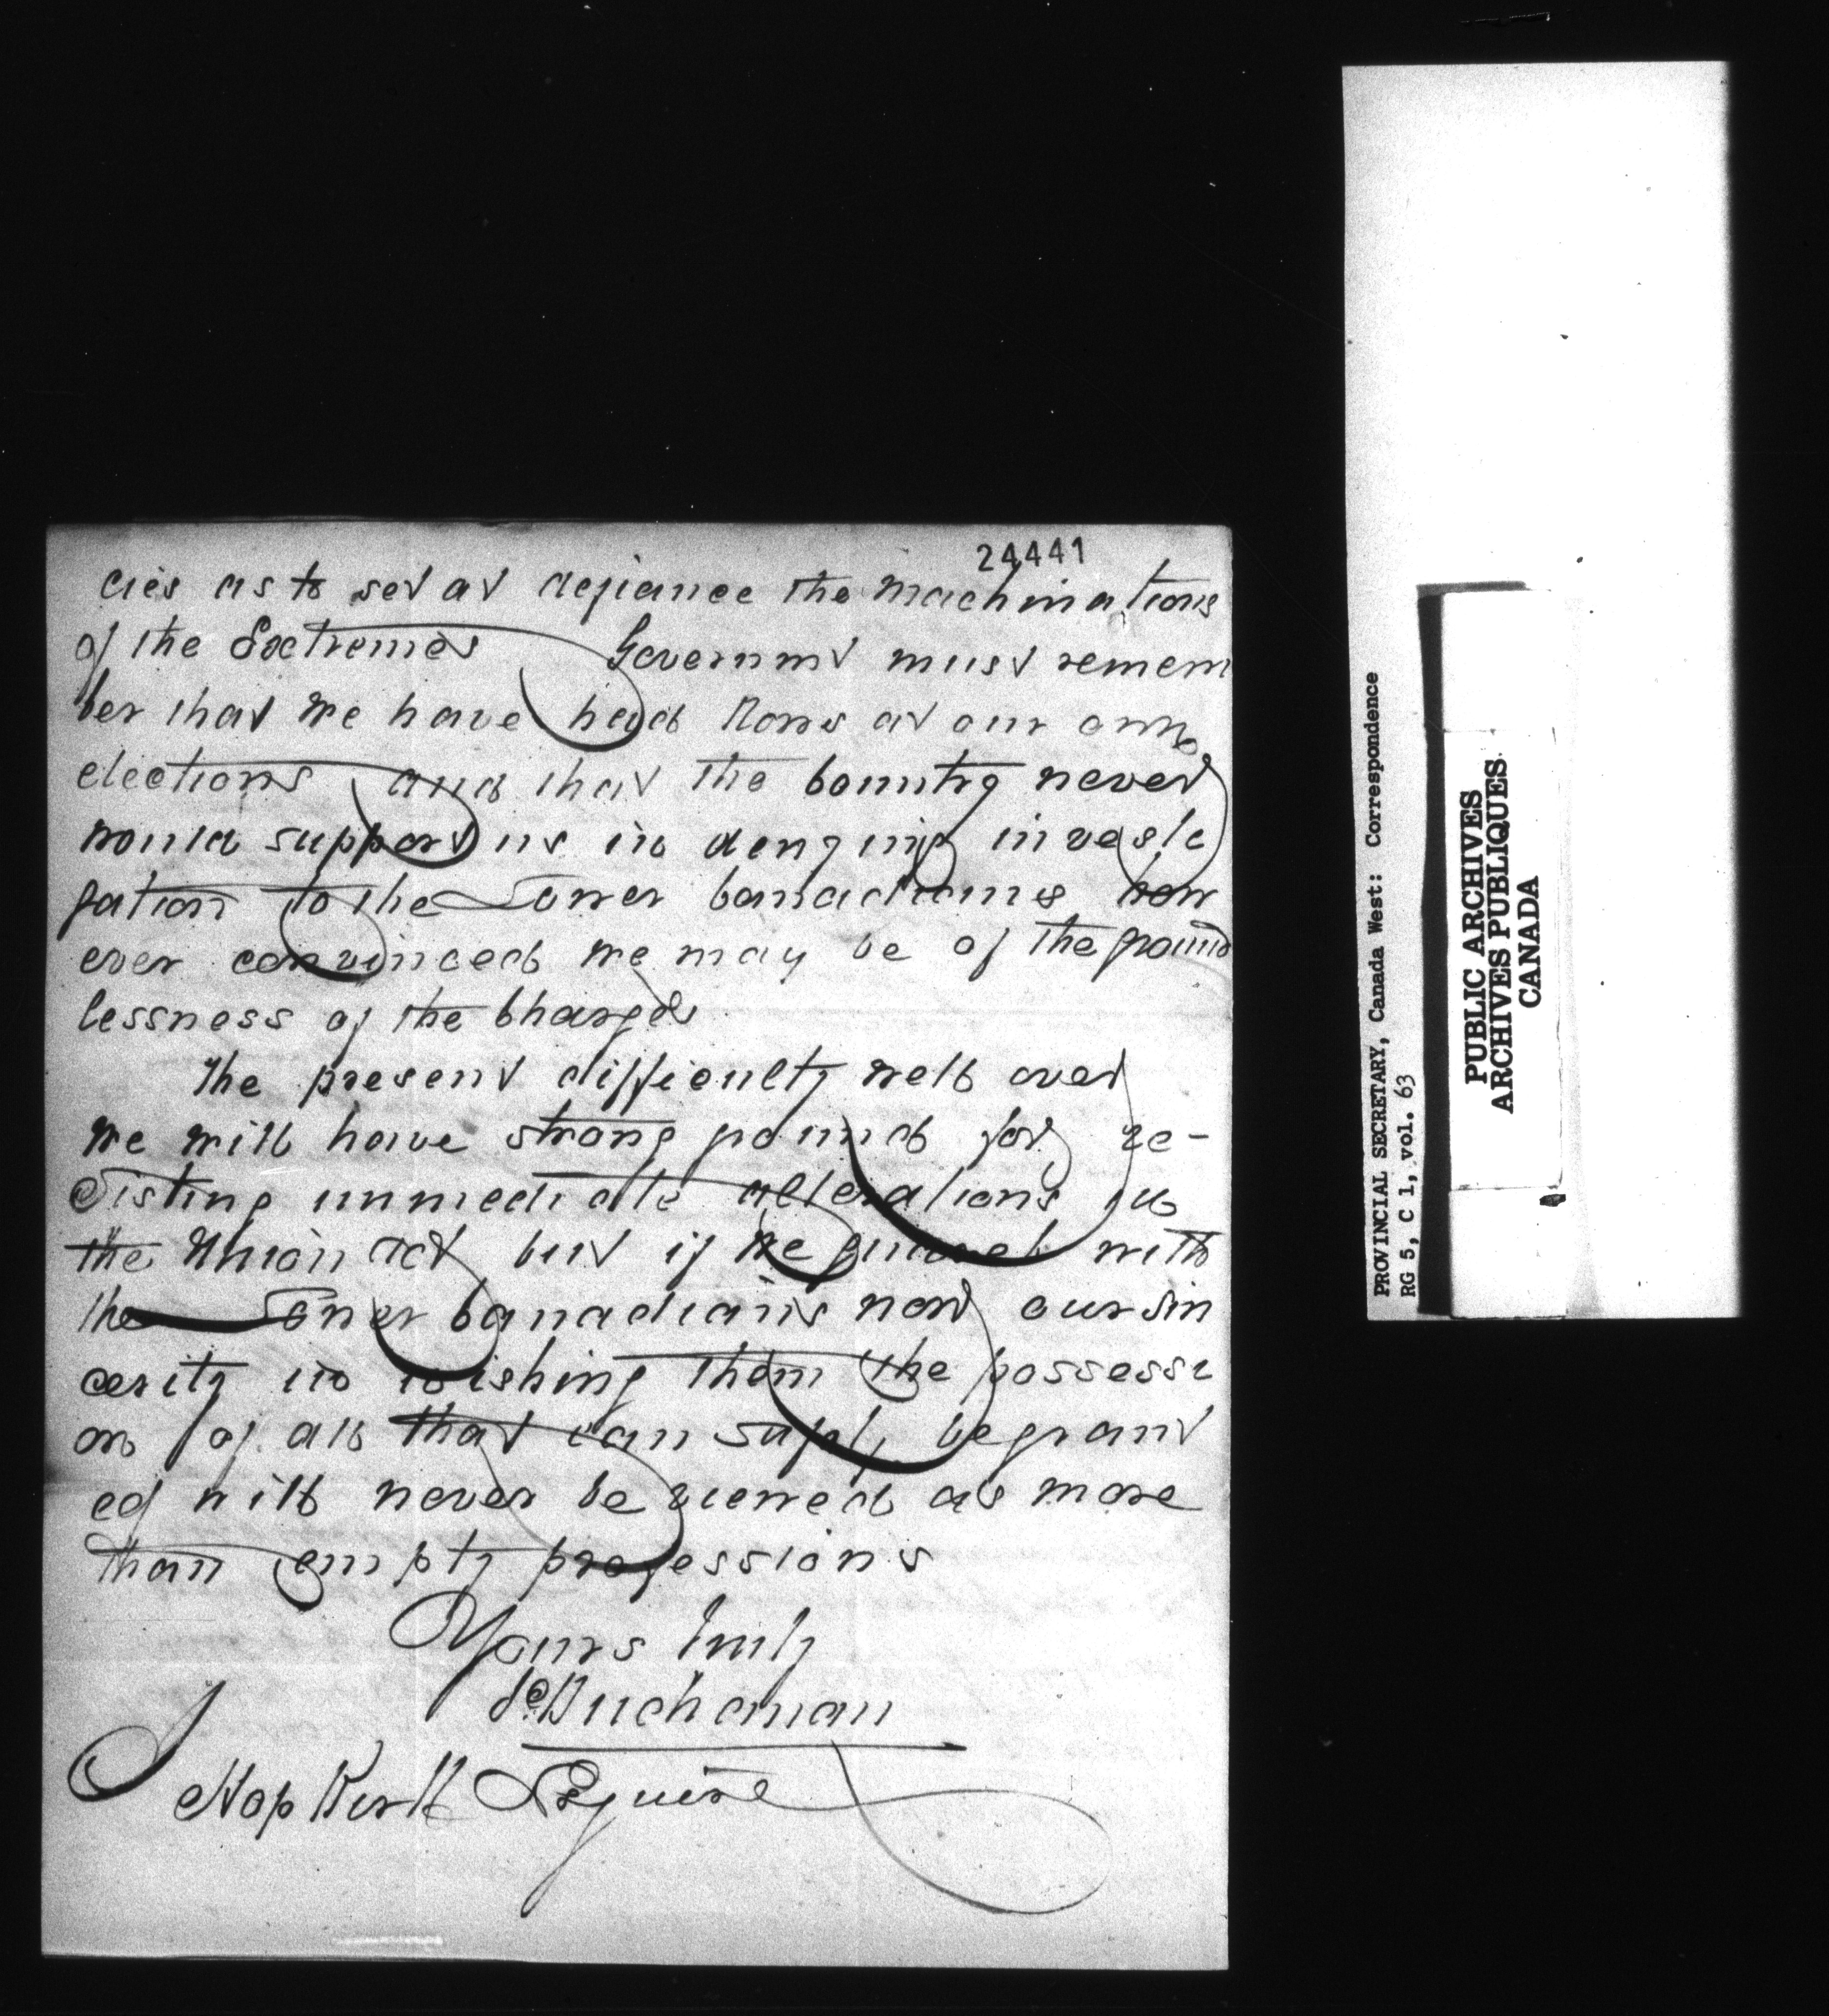 24441
cies as to set at defiance the machinations
of the Extremes Governmt must remem
ber that we have had Rows at our own
elections and that the Country never
would support us in denying investi
gation to the Lower Canadians how
ever convinced we may be of the ground
lessness of the Charges
The present difficulty well over
we will have strong ground for re-
sisting immediate alterations in
the Union Act but if we quarrel with
the Lower Canadians now our sin
cerity in wishing them the possessi
on of all that can safely be grant
ed will never be viewed as more
than empty professions
Yours truly
Is. Buchanan
Hopkirk Esquire
PROVINCIAL SECRETARY, Canada West: Correspondence
RG 5, C 1, vol. 63
PUBLIC ARCHIVES
ARCHIVES PUBLIQUES
CANADA